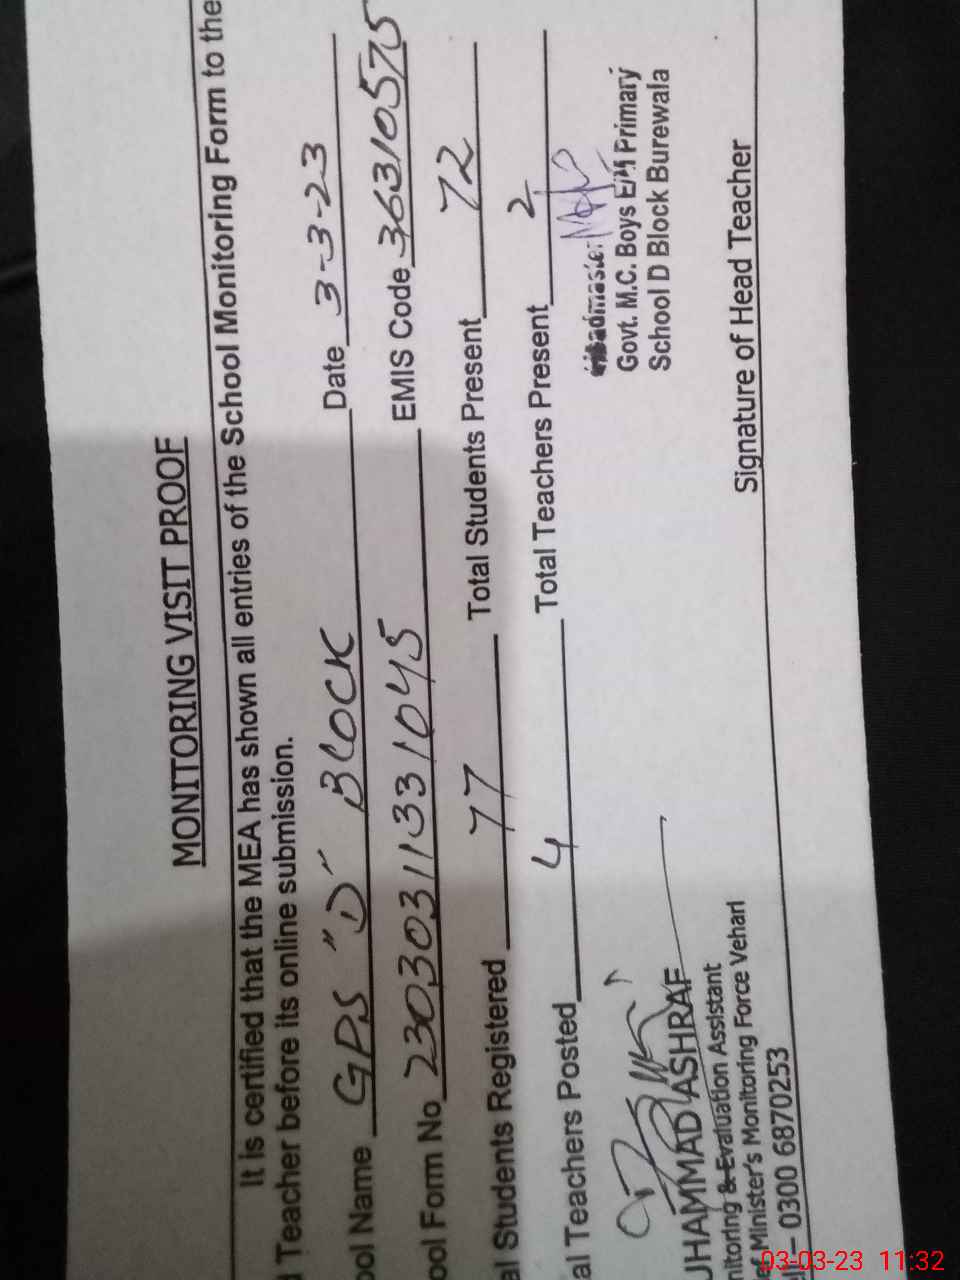 MONITORING VISIT PROOF
It is certified that the MEA has shown all entries of the School Monitoring Form to the
d Teacher before its online submission.
ool Name GPS "D" BLOCK Date 3-3-23
ool Form No 230303113331045 EMIS Code 36310575
al Students Registered 77 Total Students Present 72
al Teachers Posted 4 Total Teachers Present 2
Govt. M.C. Boys Primary
School D Block Burewala
UHAMMAD ASHRAF
nitoring & Evaluation Assistant
ef Minister's Monitoring Force Vehari
ll – 0300 6870253
Signature of Head Teacher
03-03-23 11:32